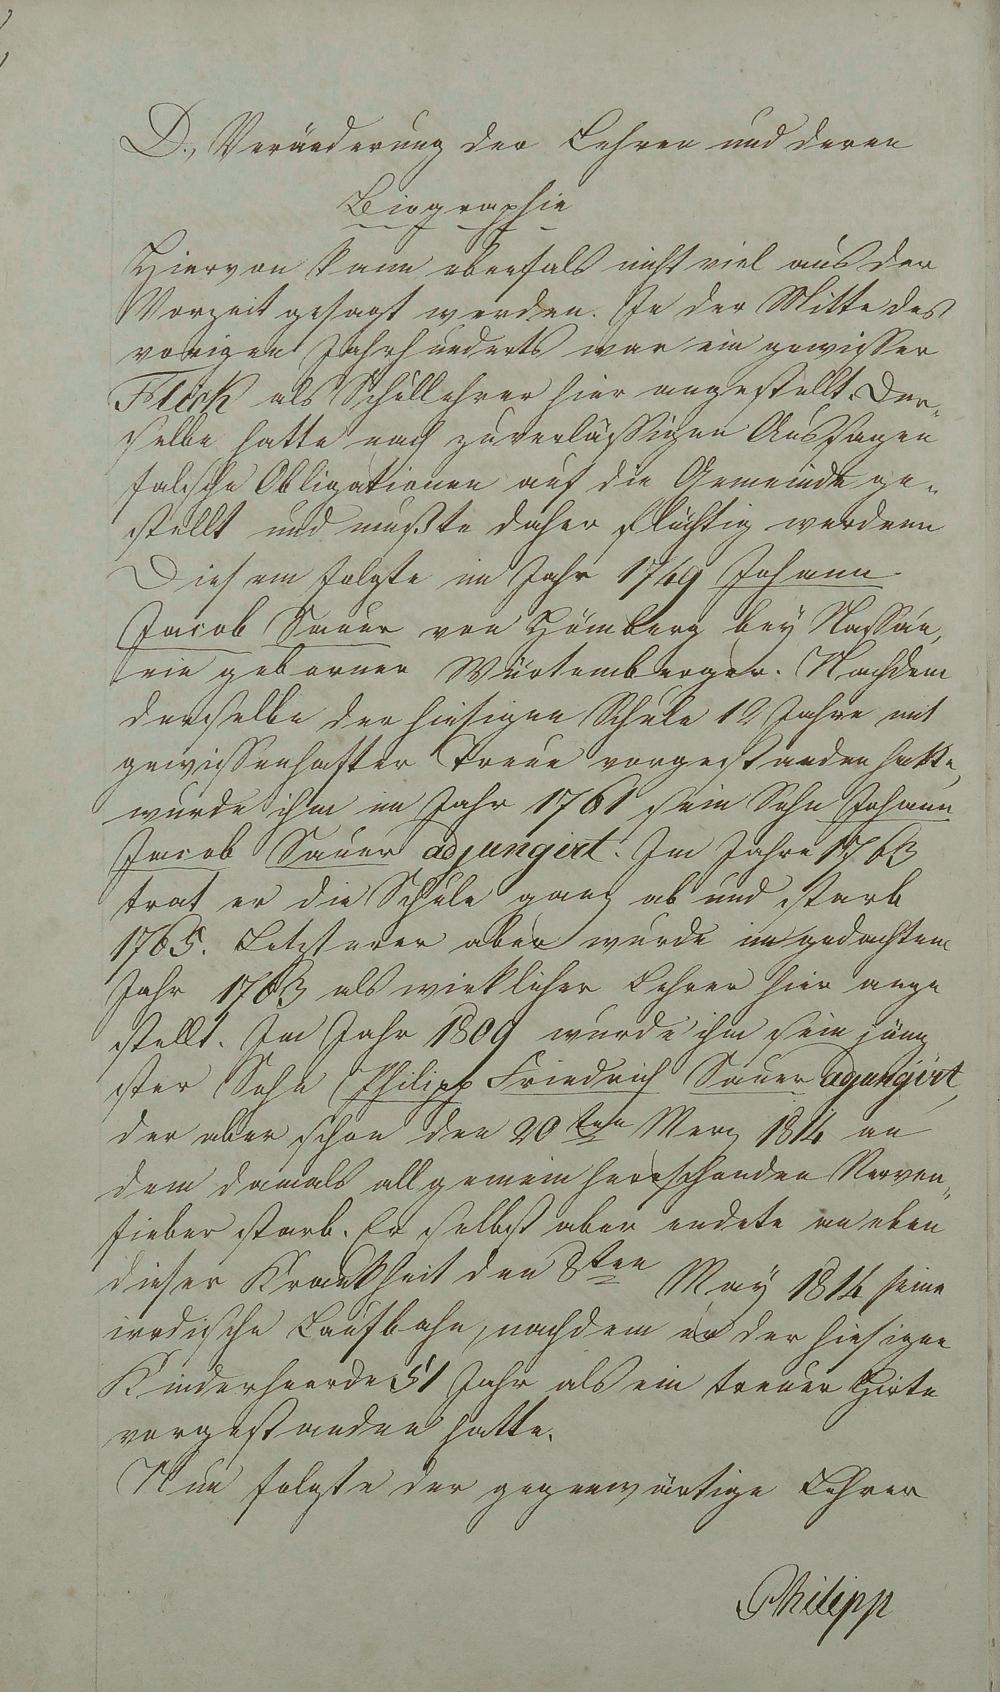 D., Veränderung der Lehrer und deren
Biographie
Hiervon kann ebenfals nicht viel aus der
Vorzeit gesagt werden. In der Mitte des
vorigen Jahrhunderts war ein gewisser
Flick als Schullehrer hier angestellt. Der-
selbe hatte nach zuverlässigen Aussagen
falsche Obligationen auf die Gemeinde ge-
stellt und mußte daher flüchtig werden
Diesem folgte im Jahr 1749 Johann
Jacob Sauer von Hömberg beÿ Nassau,
ein geborner Würtemberger. Nachdem
derselbe der hiesigen Schule 12 Jahre mit
gewissenhafter Treue vorgestanden hatte,
wurde ihm im Jahr 1761 sein Sohn Johann
Jacob Sauer adjungirt. Im Jahre 1763
trat er die Schule ganz ab und starb
1765. Letzterer aber wurde im gedachten
Jahr 1763 als wirklicher Lehrer hier ange
stellt. Im Jahr 1809 wurde ihm sein jüng
ster Sohn Philipp Friedrich Sauer agungirt,
der aber schon den 20ten Merz 1814 an
dem damals allgemein herrschenden Nerven-
fieber starb. Er selbst aber endete an eben
dieser Krankheit den 8ten Maÿ 1814 seine
irrdische Laufbahn, nachdem er der hiesigen
Kinderheerde 51 Jahr als ein treuer Hirte
vorgestanden hatte.
Nun folgte der gegenwärtige Lehrer
Philipp